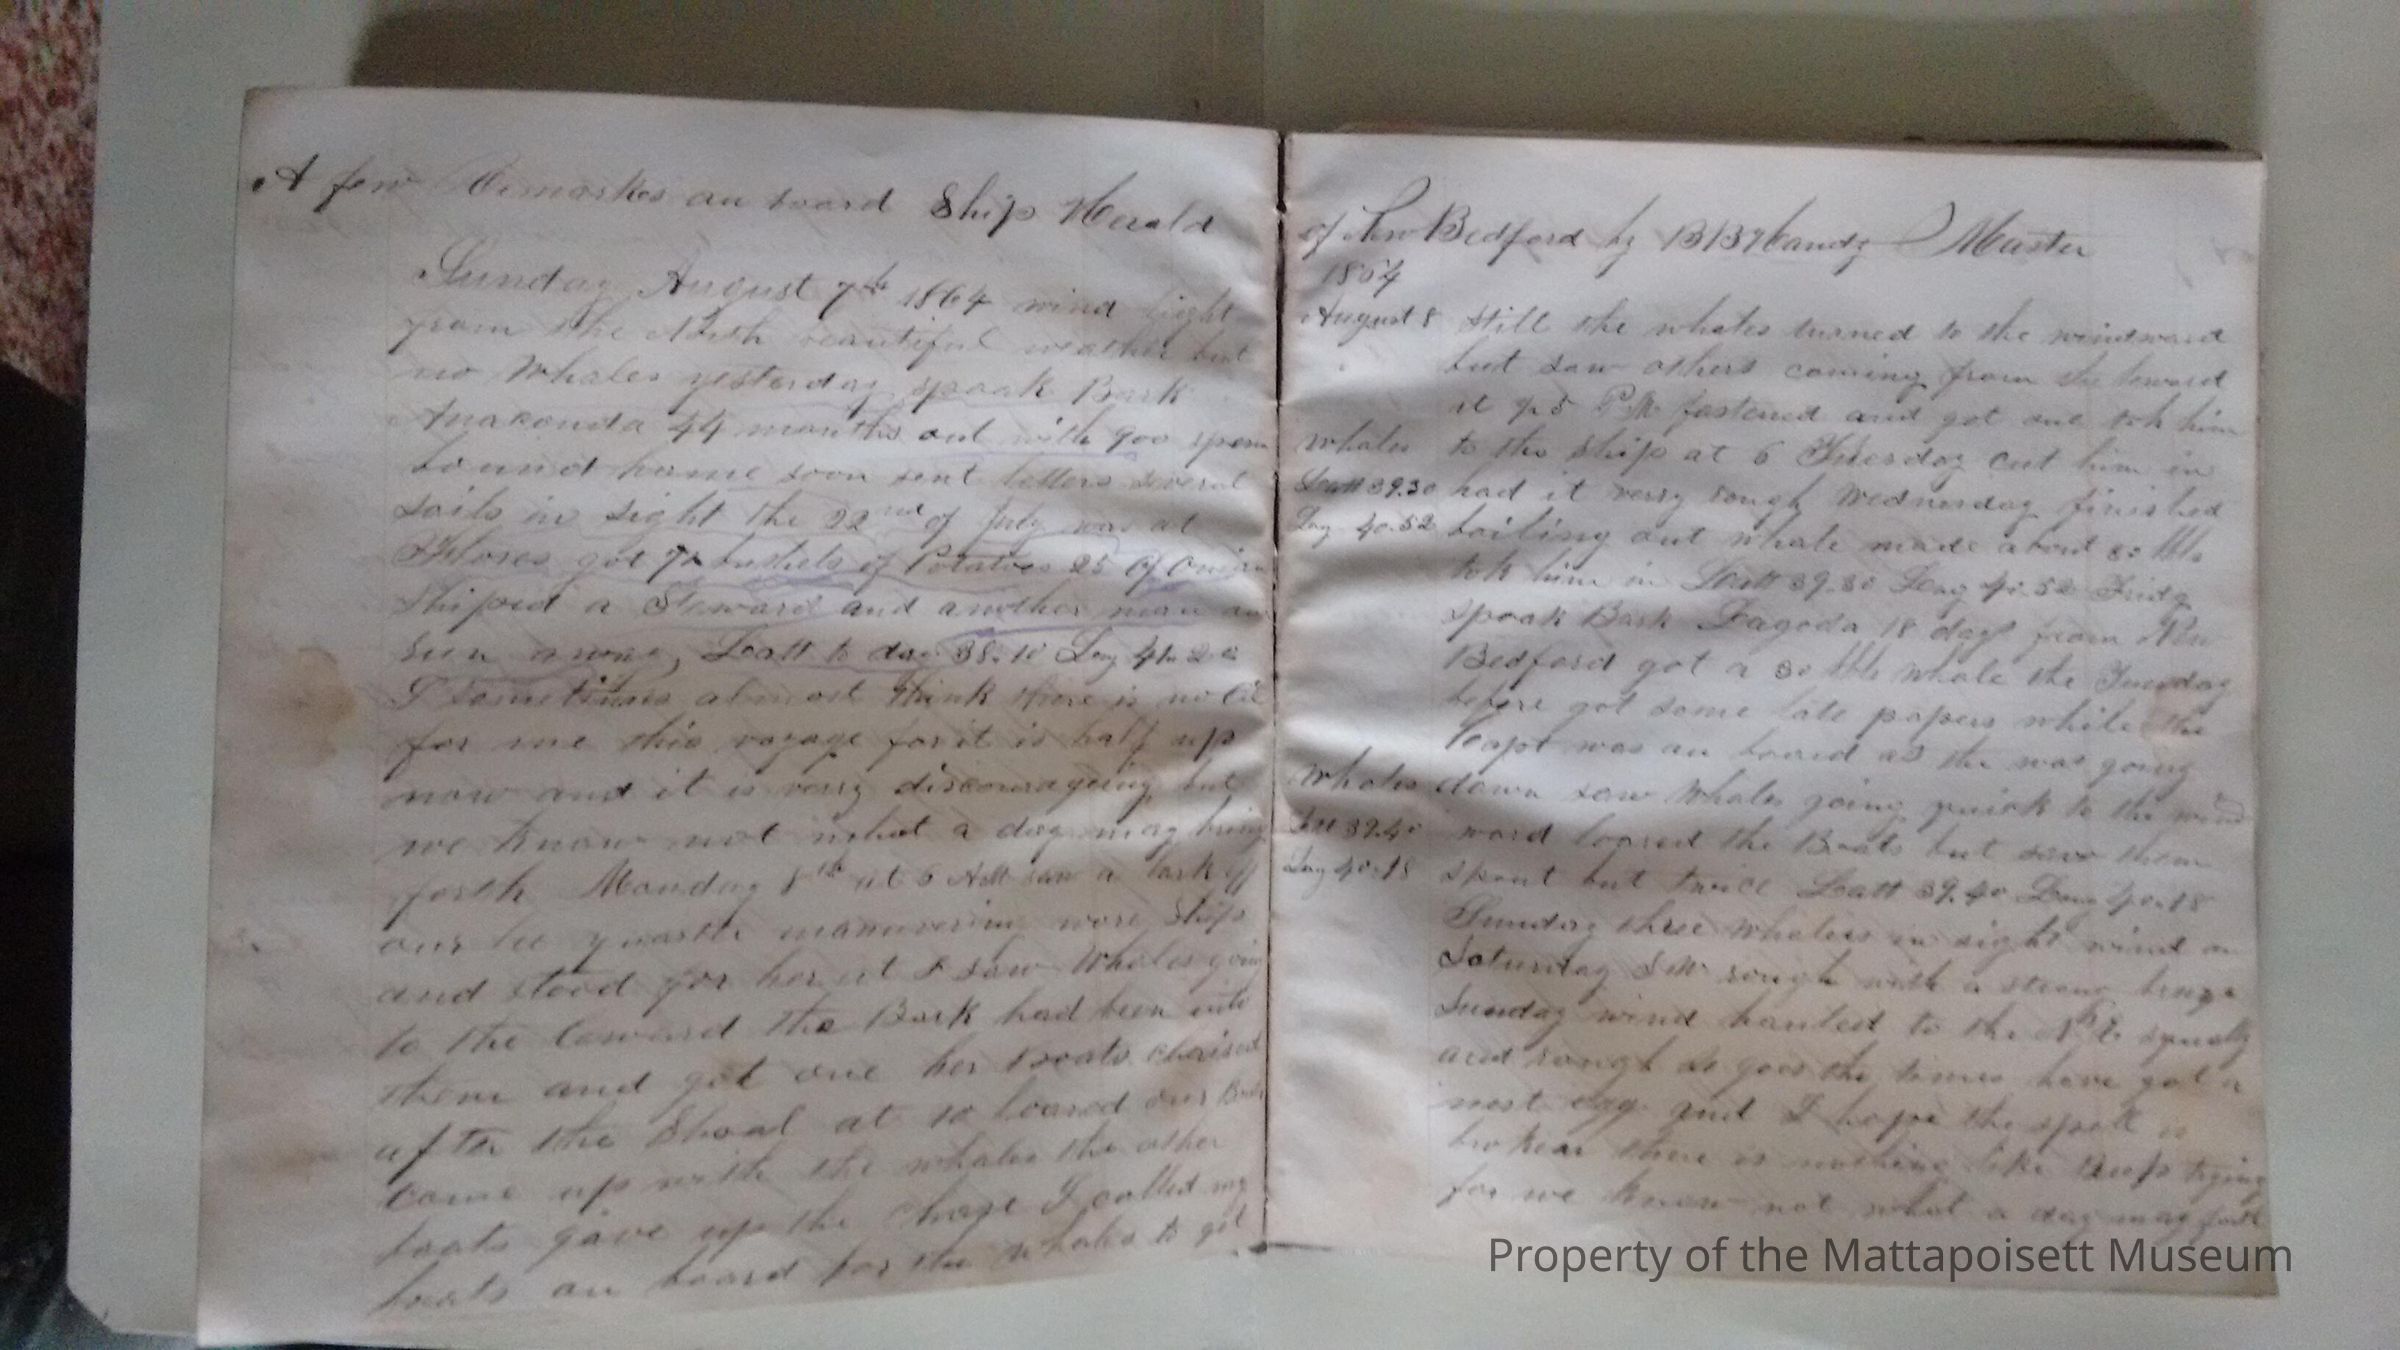 A few Remarkes on board Ship Herald
Sunday August 7th 1864 wind light
from the North beautiful weather but
no Whales yesterday spoak Bark
Anaconda 44 months out with 900 sperm
bound home soon sent letters several
sails in sight the 22nd of July was at
Flores got 70 bushels of Potatoes 25 of Onions
Shiped a Steward and another man
run away, Latt to day 38.10 Long 41.20
I sometimes almost think there is no oil
for me this voyage for it is half up
now and it is verry discourageing but
we know not what a day may bring
forth Monday 8th at 6 AM saw a bark off
our lee quarter manuvering wore Ship
and stood for her at 8 saw Whales going
to the leward the Bark had been into
them and got one her Boats chaised
after the Shoal at 10 loared our Boats
came up with the whales the other
boats gave up the chase I called my
boats on board for the whales to get
of New Bedford by BB Handy Master
1864
August 8 still the whales turned to the windward
but saw others coming from the leward
at 4.5 PM fastened and got one tok him
whales to the ship at 6 Tuesday cut him in
Latt 39.30 had it verry rough Wednesday finished
Long 40.52 boiling out whale made about 80 bbls
tok him in Latt 39.30 Long 40.52 Friday
spoak Bark Lagoda 18 days from New
Bedford got a 30 bbls whale the Tuesday
before got some late papers while the
Capt was on board as she was going
Whales down saw Whales going quick to the wind
Latt 39.40 ward loared the Boats but saw them
Long 40.18 spout but twice Latt 39.40 Long 40.18
Sunday three whalers in sight wind on
Saturday SW rough with a strong breeze
Sunday wind hauled to the NE squally
and rough So goes the times have got a
nest egg and I hope the spell is
broken there is nothing like keep trying
for we know not what a day may forth
Property of the Mattapoisett Museum